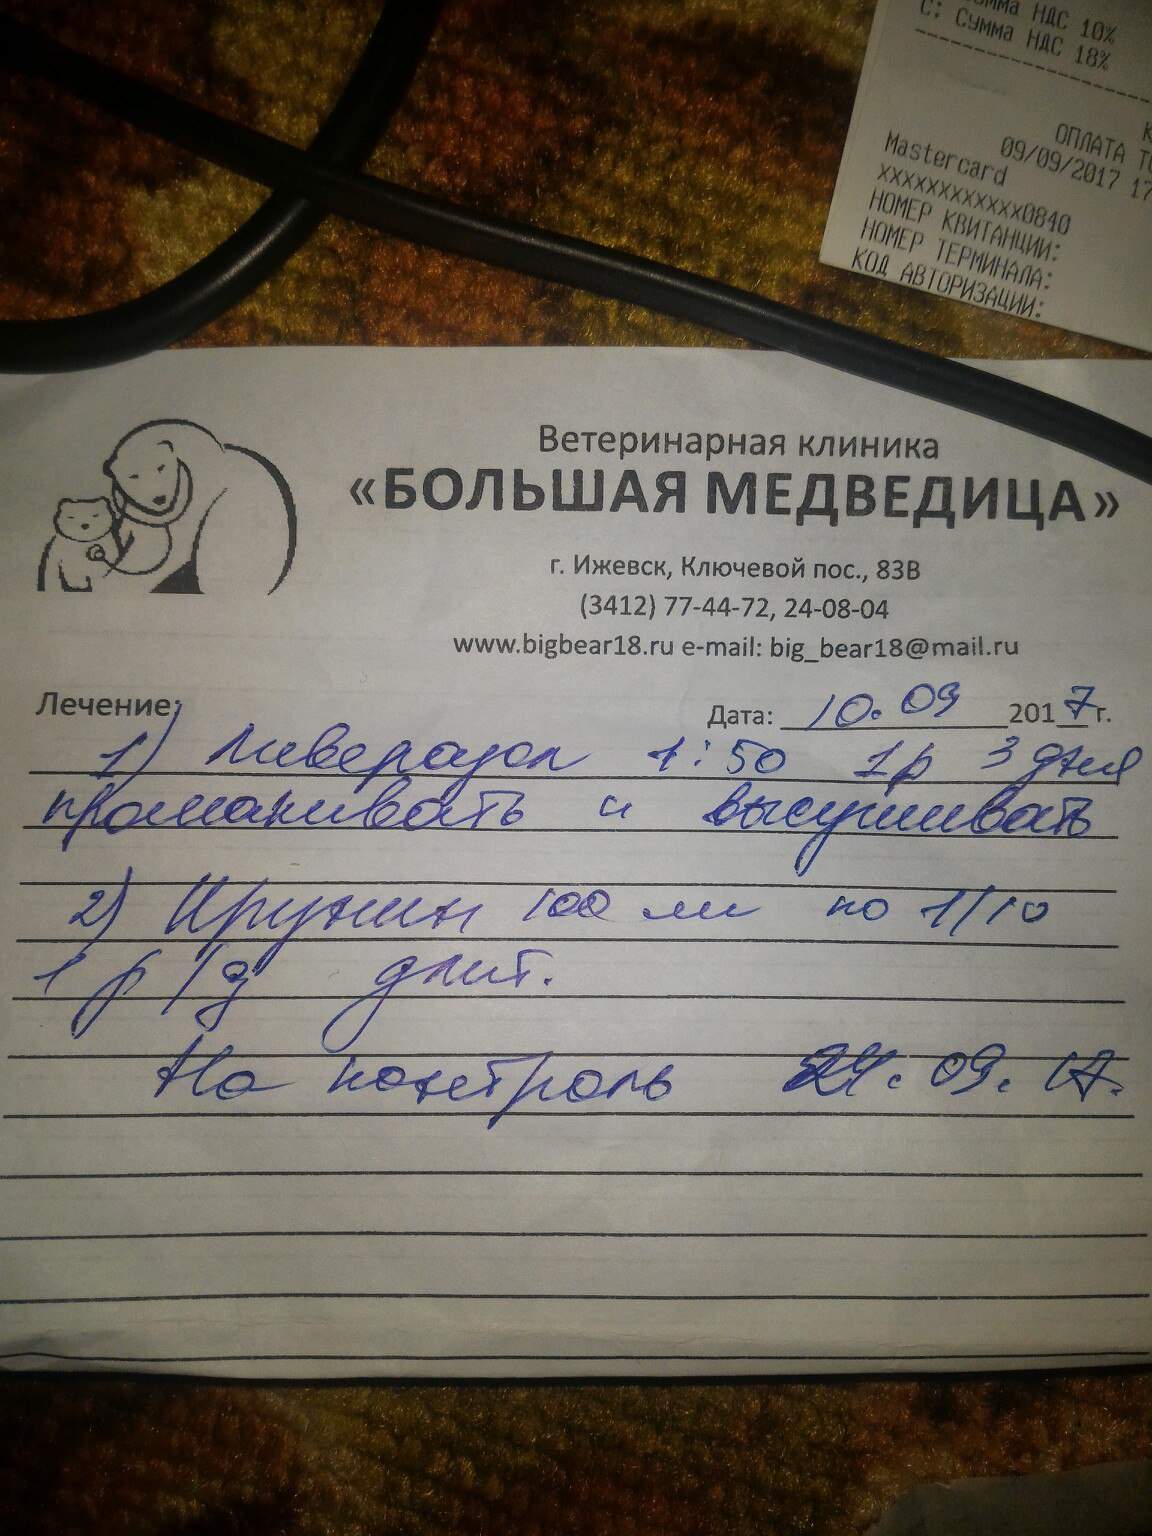 Сумма НДС 10%
С: Сумма НДС 18%
ОПЛАТА
09/09/2017 17
Mastercard
xxxxxxxxxxxx0840
НОМЕР КВИТАНЦИИ:
НОМЕР ТЕРМИНАЛА:
КОД АВТОРИЗАЦИИ:
Ветеринарная клиника
«БОЛЬШАЯ МЕДВЕДИЦА»
г. Ижевск, Ключевой пос., 83В
(3412) 77-44-72, 24-08-04
www.bigbear18.ru e-mail: big_bear18@mail.ru
Лечение: Дата: 10.09 2017 г.
1) 1:50 1р 3 дня
промакивать и высушивать
2) Ирунин 100 мг по 1/10
1 р/д длит.
На контроль 24.09.17.